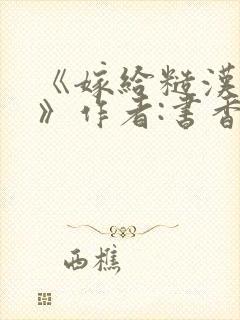 《嫁给糙汉
》作者:书香
西樵